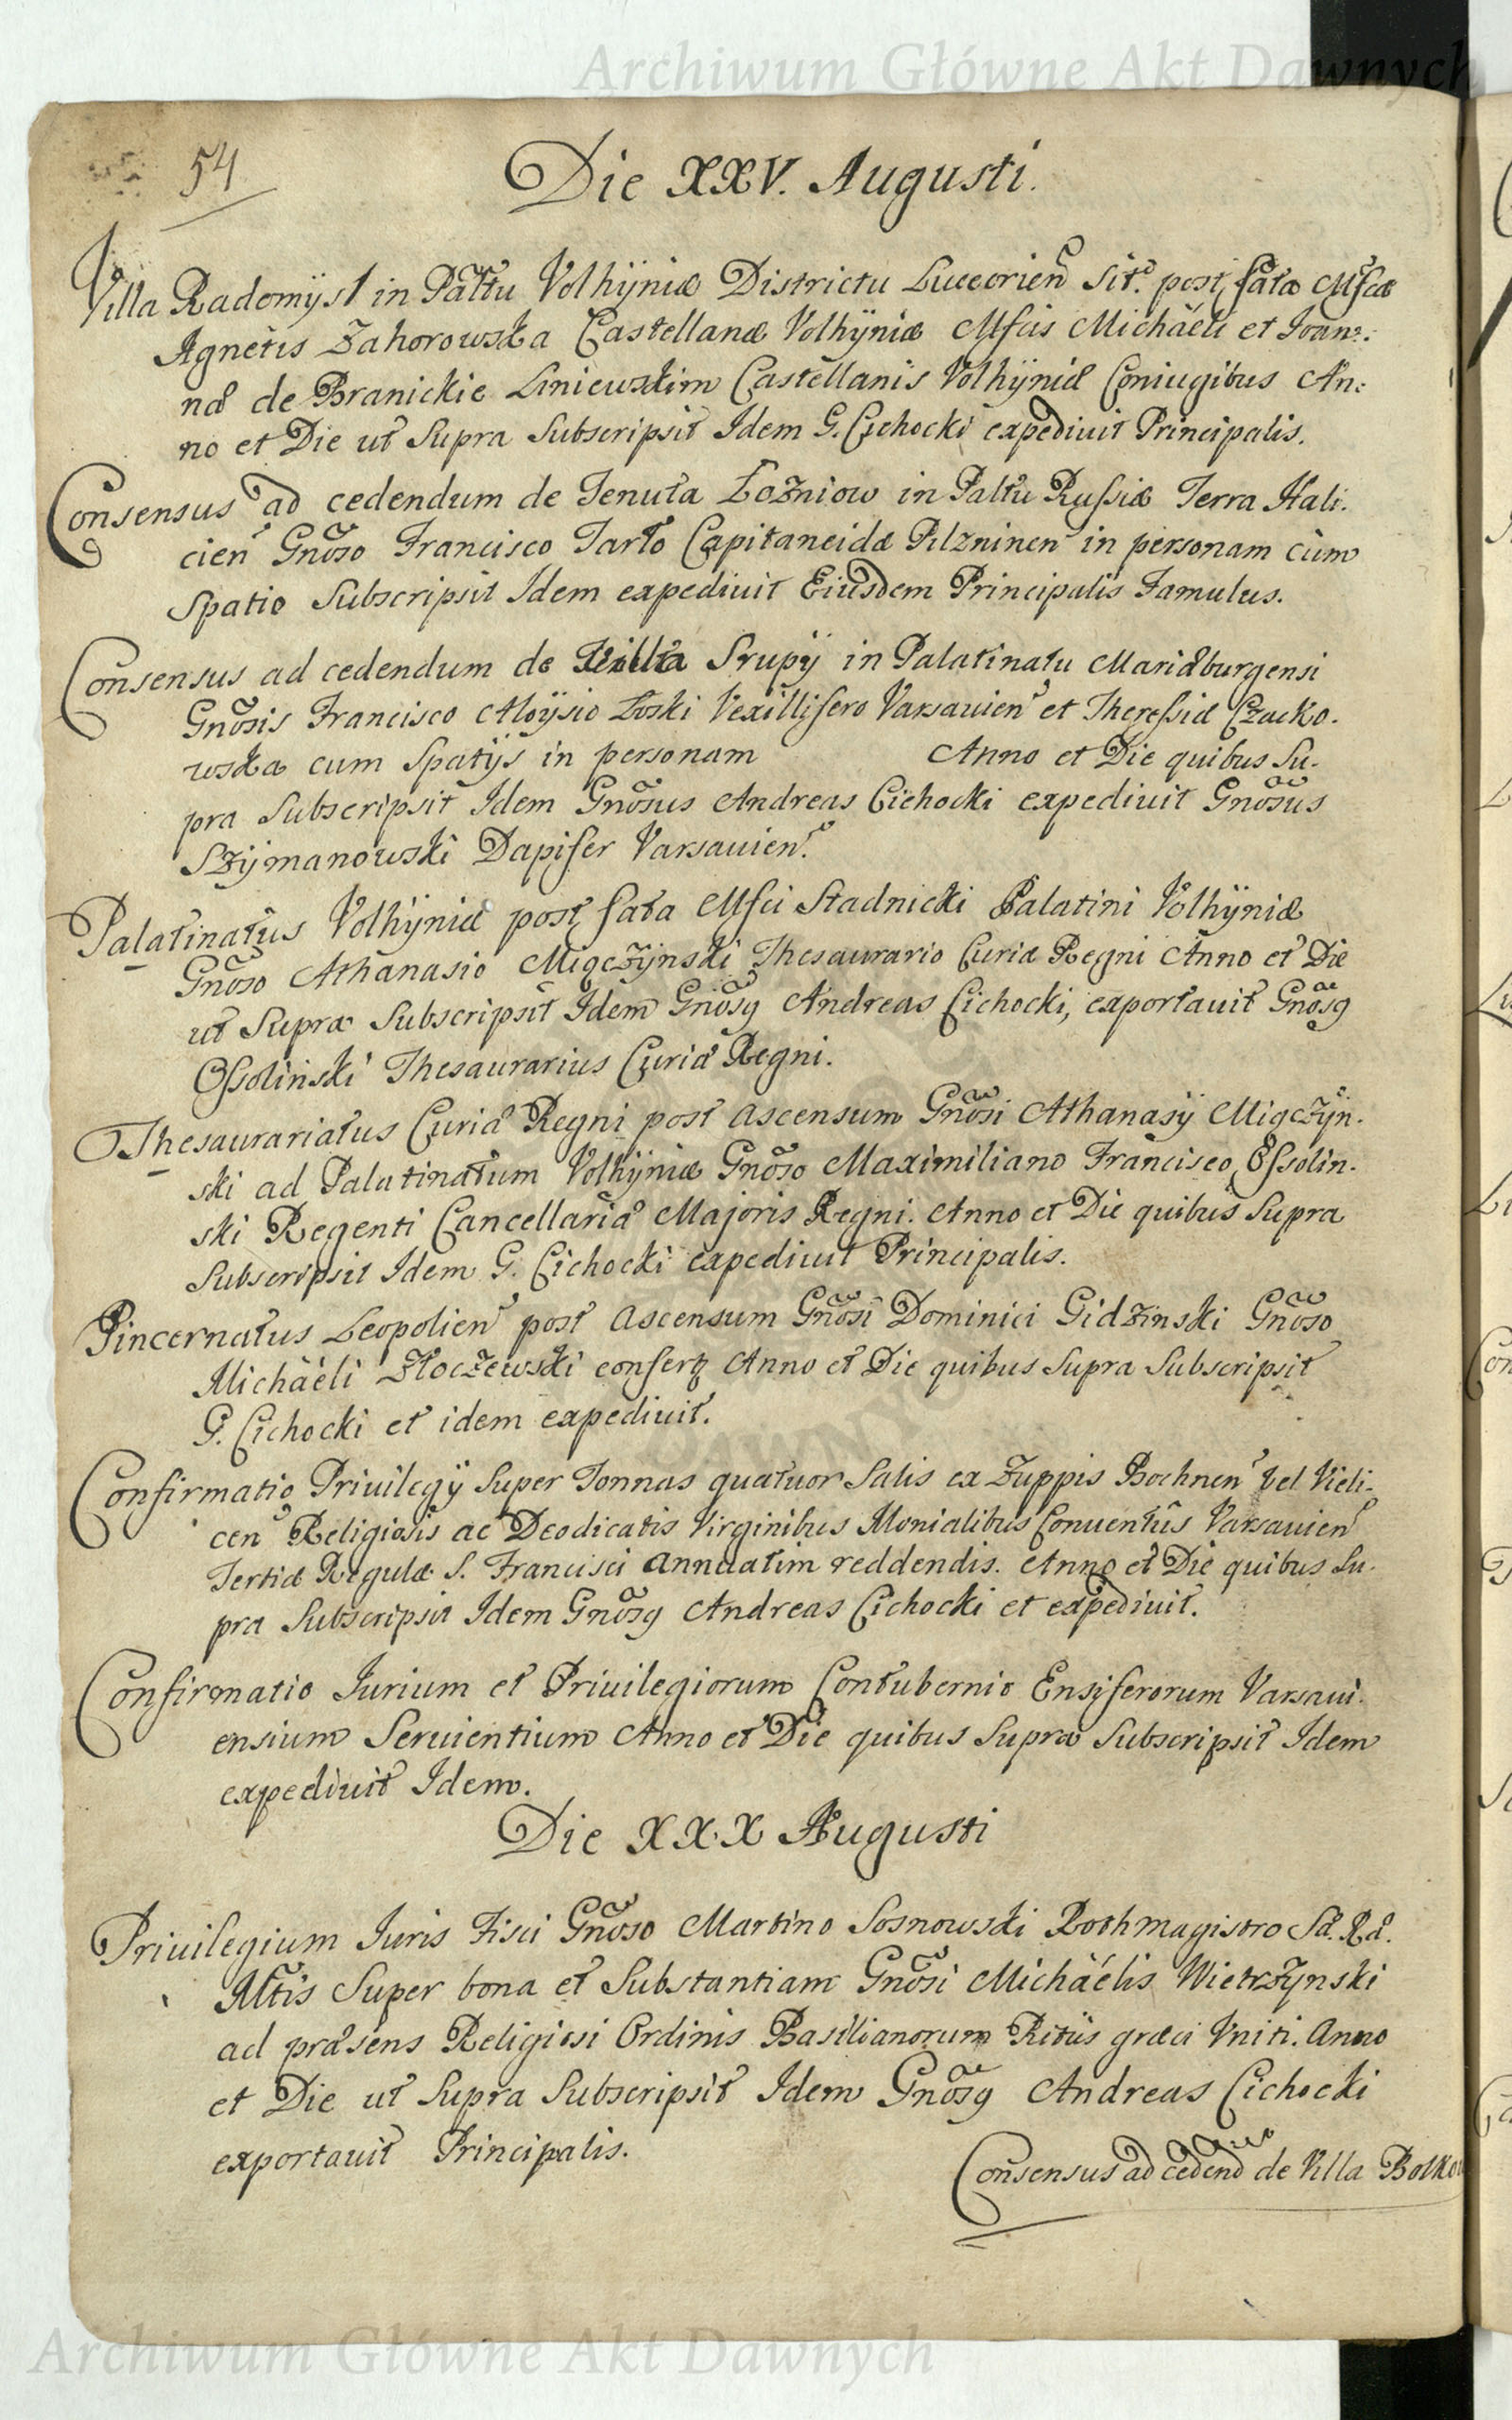 Archiwum Główne Akt Dawnych
54
Die XXV. Augusti.
Villa Radomÿsł in Paltu Volhÿniæ Districtu Luceorien Sit. post fata Mfcæ
Agnetis Zahorowska Castellanæ Volhÿniæ Mfcis Michaéli et Ioan:
næ de Branickie Liniewskim Castellanis Volhÿniæ Coniugibus An:
no et Die ut Supra Subscripsit Idem G. Cichocki expediuit Principalis.
Consensus ad cedendum de Tenuta Łozniow in Paltu Russiæ Terra Hali.
cien Gnoso Francisco Tarło Capitaneidæ Pilzninen in personam cum
Spatio Subscripsit Idem expediuit Eiusdem Principalis Famulus.
Consensus ad cedendum de Villa Srupÿ in Palatinatu Mariæburgensi
Gnosis Francisco Aloÿsio Łoski Vexillifero Varsauien et Theressiæ Czacko.
wska cum Spatÿs in personam Anno et Die quibus Su.
pra Subscripsit Idem Gnosus Andreas Cichocki expediuit Gnosus
Szÿmanowski Dapifer Varsauien.
Palatinatus Volhÿniæ post fata Mfci Stadnicki Palatini Volhÿniæ
Gnoso Athanasio Miączÿnski Thesaurario Curiæ Regni Anno et Die
ut Supra Subscripsit Idem Gnosq Andreas Cichocki, exportauit Gnosq
Ossolinski Thesaurarius Curiæ Regni.
Thesaurariatus Curiæ Regni post ascensum Gnosi Athanasÿ Miączÿn.
ski ad Palatinatum Volhÿniæ Gnoso Maximiliano Francisco Ossolin.
ski Regenti Cancellariæ Majoris Regni. Anno et Die quibus Supra
Subscripsit Idem G. Cichocki expediuit Principalis.
Pincernatus Leopolien post ascensum Gnosi Dominici Gidzinski Gnoso
Michaéli Złoczewski confertz Anno et Die quibus Supra Subscripsit
G. Cichocki et idem expediuit.
Confirmatio Priuilegÿ Super Tonnas quatuor Salis ex Zuppis Bochnen vel Vieli.
cen Religiosis ac Deodicatis Virginibus Monialibus Conuentûs Varsauien
Tertiæ Regulæ S. Francisci annuatim reddendis. Anno et Die quibus Su.
pra Subscripsit Idem Gnosq Andreas Cichocki et expediuit.
Confirmatio Iurium et Priuilegiorum Contubernio Ensiferorum Varsaui.
ensium Seruientium Anno et Die quibus Supra Subscripsit Idem
expediuit Idem.
Die XXX Augusti
Priuilegium Iuris Fisci Gnoso Martino Sosnowski Rothmagistro Sæ. Ræ.
Mtis Super bona et Substantiam Gnosi Michaélis Wietrzynski
ad præsens Religiosi Ordinis Basilianorum Ritûs græci Vniti. Anno
et Die ut Supra Subscripsit Idem Gnosq Andreas Cichocki
exportauit Principalis.
Consensus ad cedend de Villa Bolkow
Archiwum Główne Akt Dawnych